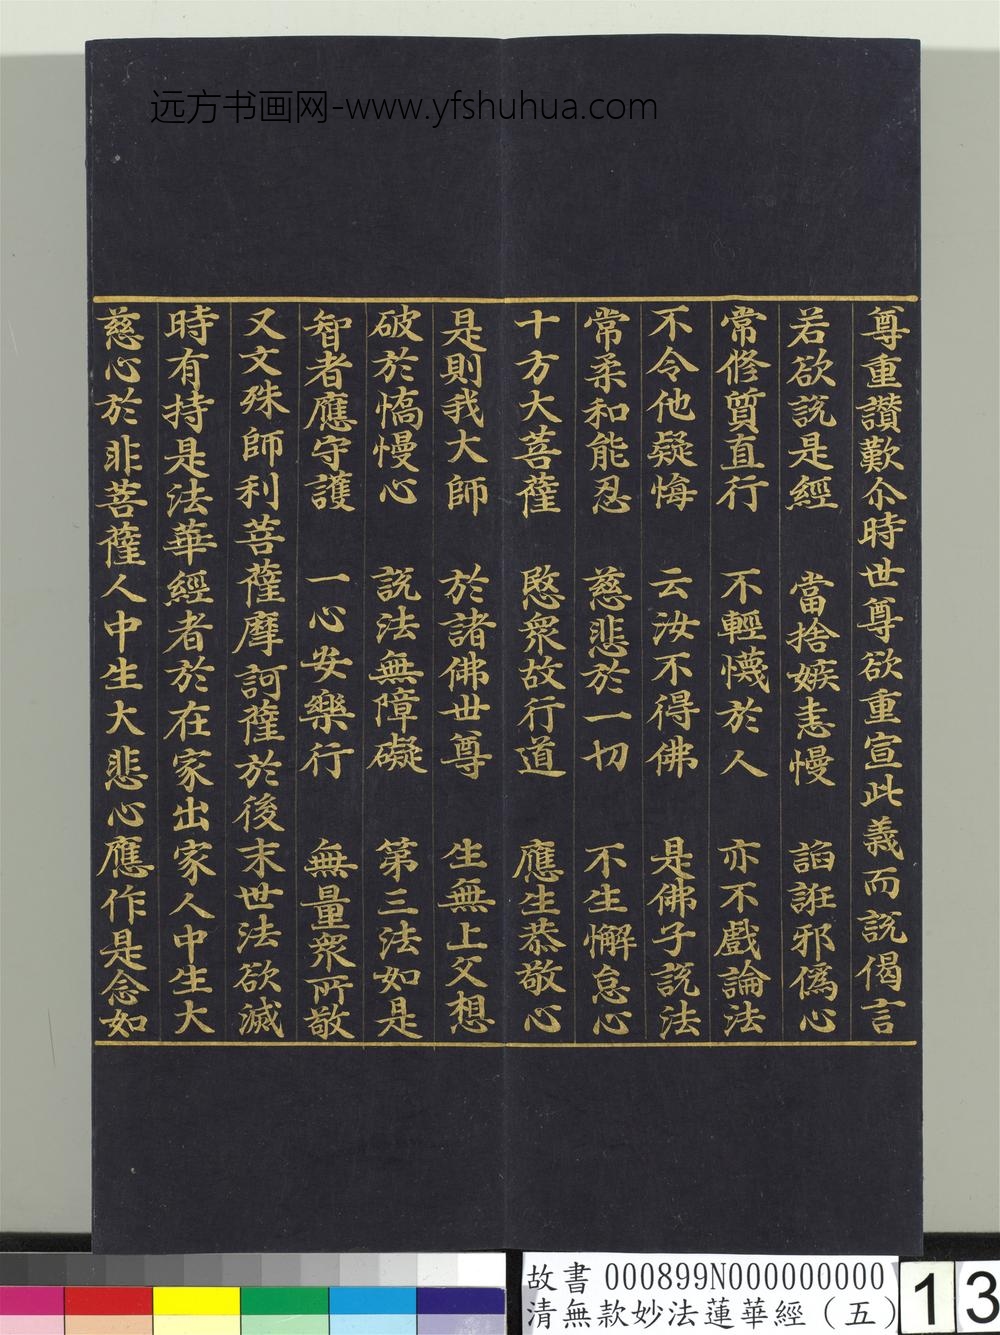 远方书画网-www.yfshuhua.com
尊重讚歎尒時世尊欲重宣此義而說偈言
若欲說是經　當捨嫉恚慢　諂誑邪偽心
常修質直行　不輕懱於人　亦不戲論法
不令他疑悔　云汝不得佛　是佛子說法
常柔和能忍　慈悲於一切　不生懈怠心
十方大菩薩　愍衆故行道　應生恭敬心
是則我大師　於諸佛世尊　生無上父想
破於憍慢心　說法無障礙　第三法如是
智者應守護　一心安樂行　無量衆所敬
又文殊師利菩薩摩訶薩於後末世法欲滅
時有持是法華經者於在家出家人中生大
慈心於非菩薩人中生大悲心應作是念如
故書 000899N000000000
清無款妙法蓮華經（五）
13